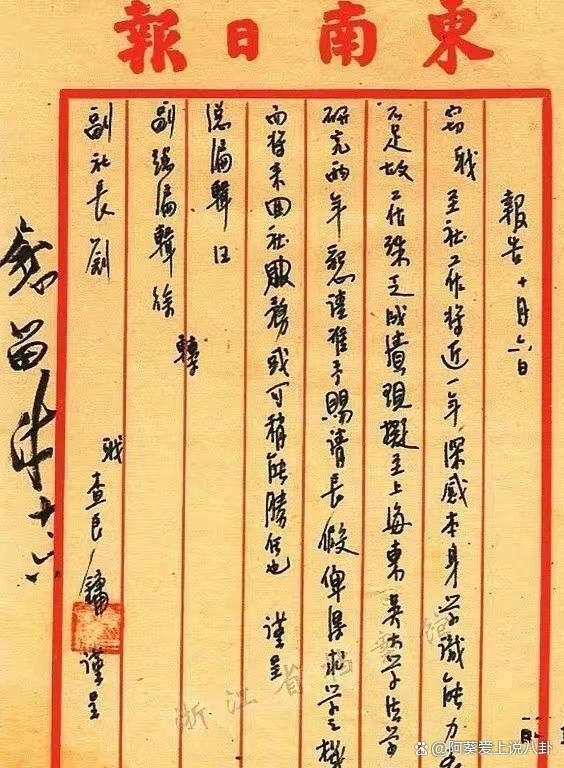 東南日報
報告 十月六日
竊職至社工作將近一年深感本身學識能力
不足故工作殊乏成績現擬至上海東吳大學法學
研究兩年懇請准予賜請長假俾得求學之機
而將來回社服務或可稍能勝任也 謹呈
總編輯汪
副總編輯徐 轉
副社長劉
職查良鏞 謹呈
慰留 十、六
浙江省檔案館
@阿蓁爱上说八卦